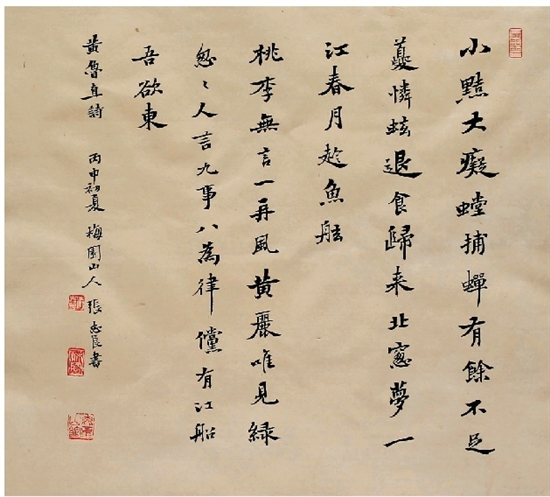 小黠大癡螳捕蟬有餘不足
夔憐蚿退食歸来北窻夢一
江春月趁魚舩
桃李無言一再風黄麗唯見緑
怱〻人言九事八為律儻有江船
吾欲東
黄魯直詩　丙申初夏　梅園山人　張忠良書